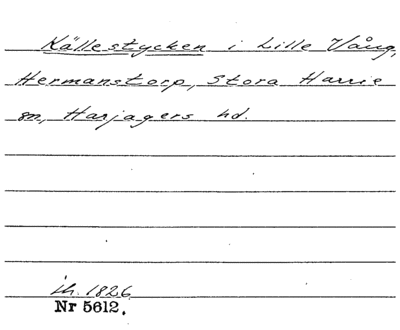 Källestycken i Lille Vång,
Hermanstorp, Stora Harrie
sn, Harjagers hd.
ih. 1826
Nr 5612.